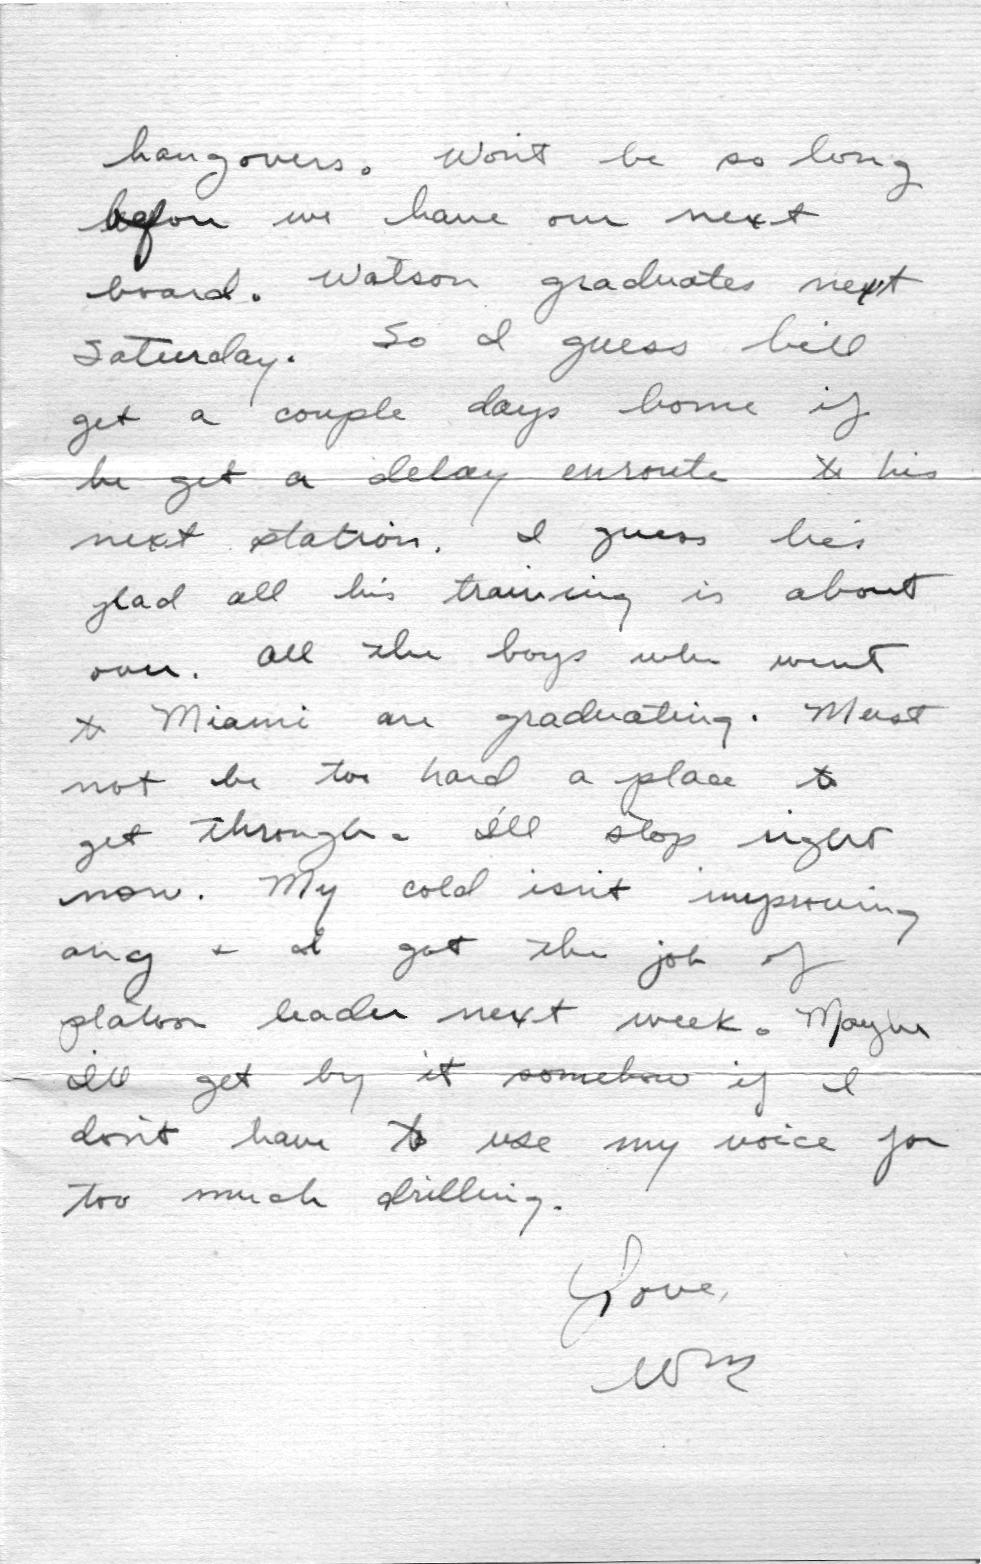 hangovers. Won't be so long
before we have our next
board. Watson graduates next
Saturday. So I guess he'll
get a couple days home if
he get a delay enroute to his
next station. I guess he's
glad all his training is about
over. All the boys who went
to Miami are graduating. Must
not be too hard a place to
get through. I'll stop right
now. My cold isn't improving
any + I got the job of
platoon leader next week. Maybe
I'll get by it somehow if I
don't have to use my voice for
too much drilling.
Love,
Wm